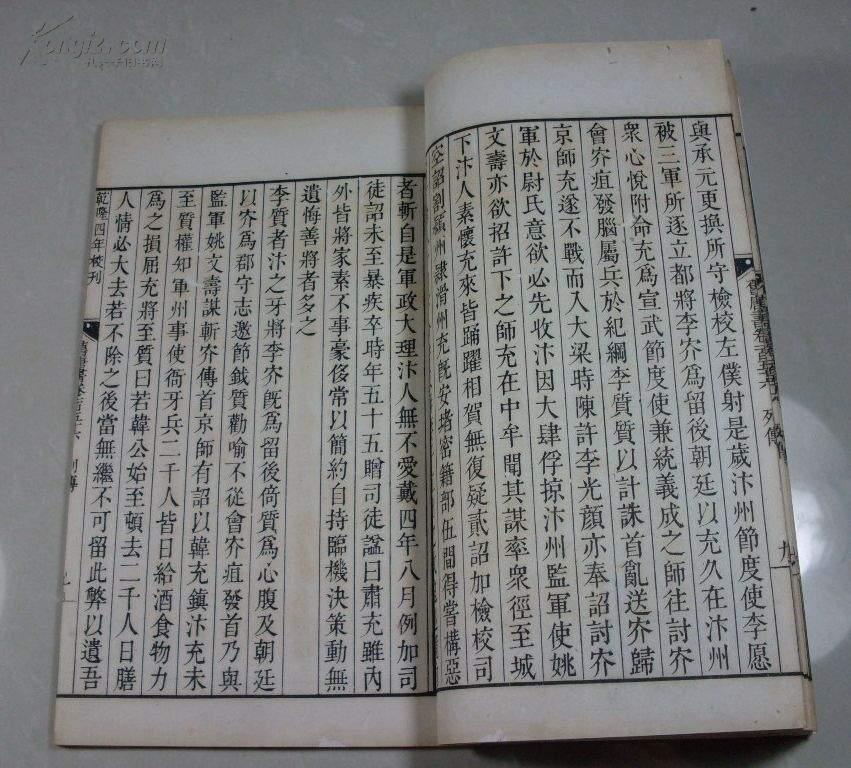 與承元更換所守檢校左僕射是歲汴州節度使李愿
被三軍所逐立都將李㝏為留後朝廷以充久在汴州
衆心悅附命充為宣武節度使兼統義成之師往討㝏
會㝏疽發腦屬兵於紀綱李質質以計誅首亂送㝏歸
京師充遂不戰而入大梁時陳許李光顔亦奉詔討㝏
軍於尉氏意欲必先收汴因大肆俘掠汴州監軍使姚
文壽亦欲招許下之師充在中牟聞其謀率衆徑至城
下汴人素懷充來皆踊躍相賀無復疑貳詔加檢校司
空詔割潁州隸滑州充旣安堵密籍部伍間得嘗構惡
者斬自是軍政大理汴人無不愛戴四年八月例加司
徒詔未至暴疾卒時年五十五贈司徒諡曰肅充雖內
外皆將家素不事豪侈常以簡約自持臨機決策動無
遺悔善將者多之
李質者汴之牙將李㝏旣為留後倚質為心腹及朝廷
以㝏為郡守志邀節鉞質勸喻不從會㝏疽發首乃與
監軍姚文壽謀斬㝏傳首京師有詔以韓充鎮汴充未
至質權知軍州事使衙牙兵二千人皆日給酒食物力
為之損屈充將至質曰若韓公始至頓去二千人日膳
人情必大去若不除之後當無繼不可留此弊以遺吾
乾隆四年校刊
舊唐書卷一百五十六 列傳